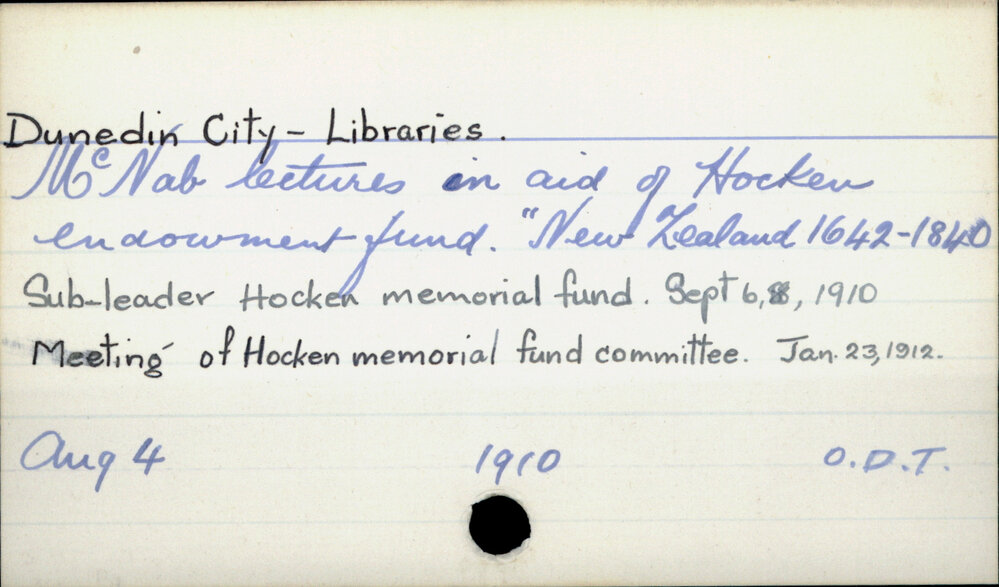 Dunedin City - Libraries.
McNab lectures in aid of Hocken
endowment fund. "New Zealand 1642-1840
Sub-leader Hocken memorial fund. Sept 6, 8, 1910
Meeting of Hocken memorial fund committee. Jan. 23, 1912.
Aug 4 1910 O.D.T.